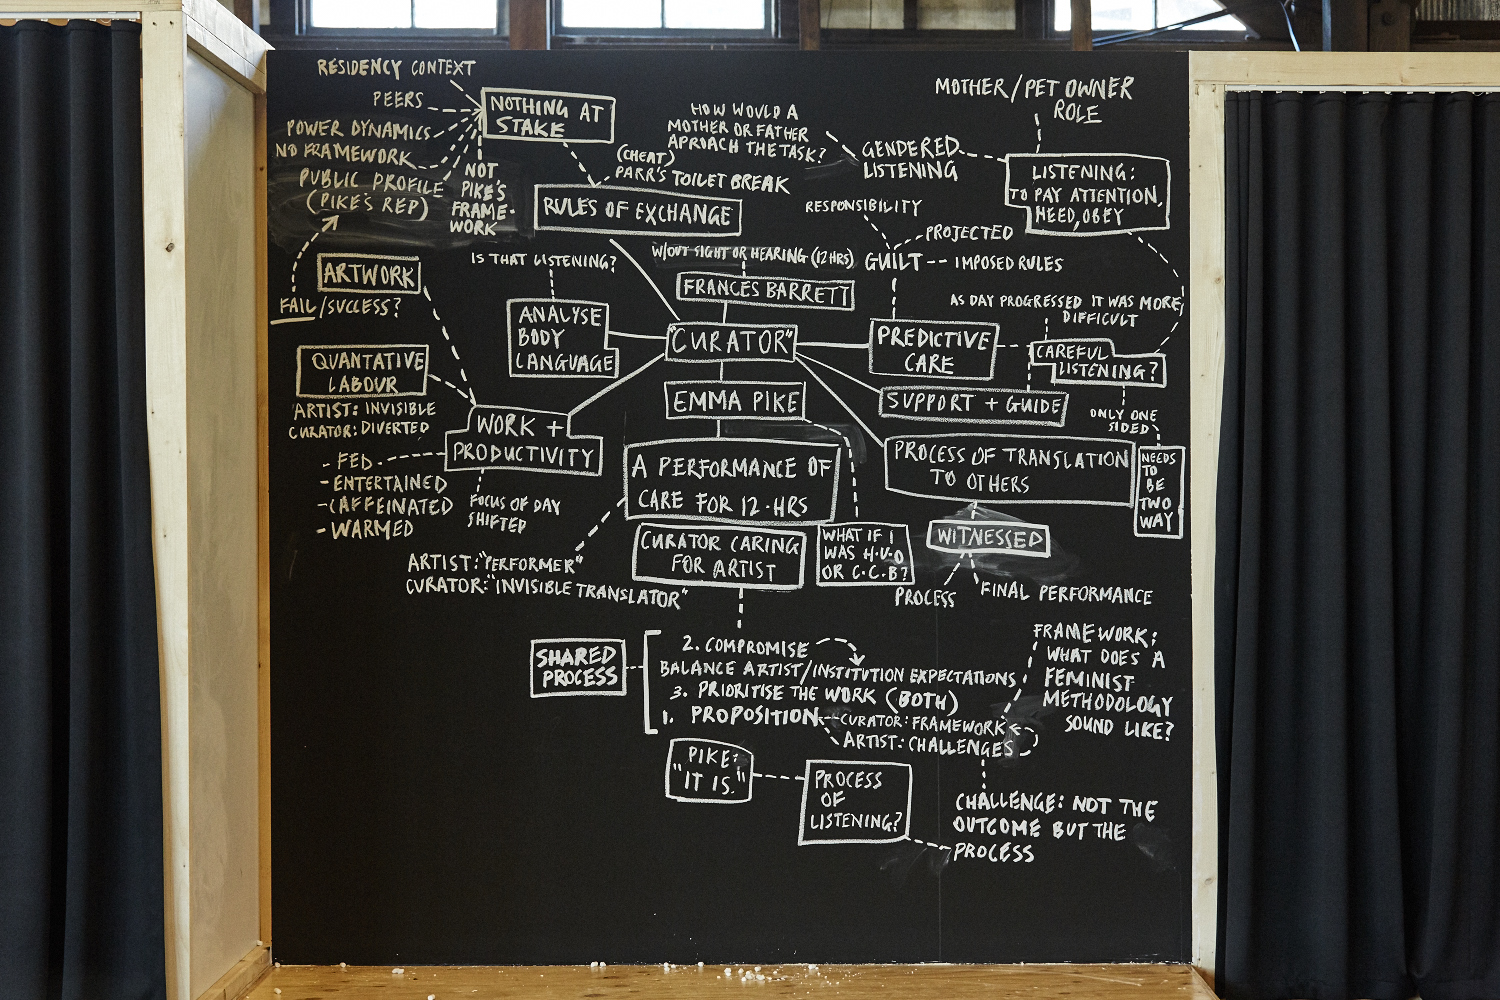 RESIDENCY CONTEXT
PEERS
POWER DYNAMICS
NO FRAMEWORK
PUBLIC PROFILE
(PIKE'S REP)
NOTHING AT
STAKE
NOT
PIKE'S
FRAME-
WORK
(CHEAT)
PARR'S TOILET BREAK
RULES OF EXCHANGE
HOW WOULD A
MOTHER OR FATHER
APROACH THE TASK?
GENDERED
LISTENING
MOTHER/PET OWNER
ROLE
LISTENING:
TO PAY ATTENTION,
HEED, OBEY
RESPONSIBILITY
PROJECTED
GUILT -- IMPOSED RULES
ARTWORK
FAIL/SUCCESS?
IS THAT LISTENING?
ANALYSE
BODY
LANGUAGE
W/OUT SIGHT OR HEARING (12HRS)
FRANCES BARRETT
"CURATOR"
EMMA PIKE
A PERFORMANCE OF
CARE FOR 12-HRS
CURATOR CARING
FOR ARTIST
PREDICTIVE
CARE
AS DAY PROGRESSED IT WAS MORE
DIFFICULT
CAREFUL
LISTENING?
SUPPORT + GUIDE
ONLY ONE
SIDED
NEEDS
TO
BE
TWO
WAY
PROCESS OF TRANSLATION
TO OTHERS
WITNESSED
PROCESS
FINAL PERFORMANCE
WHAT IF I
WAS H.V.O
OR C.C.B?
QUANTATIVE
LABOUR
ARTIST: INVISIBLE
CURATOR: DIVERTED
WORK +
PRODUCTIVITY
- FED
- ENTERTAINED
- CAFFEINATED
- WARMED
FOCUS OF DAY
SHIFTED
ARTIST: "PERFORMER"
CURATOR: "INVISIBLE TRANSLATOR"
SHARED
PROCESS
2. COMPROMISE
BALANCE ARTIST/INSTITUTION EXPECTATIONS
3. PRIORITISE THE WORK (BOTH)
1. PROPOSITION
CURATOR: FRAMEWORK
ARTIST: CHALLENGES
FRAMEWORK:
WHAT DOES A
FEMINIST
METHODOLOGY
SOUND LIKE?
PIKE:
"IT IS."
PROCESS
OF
LISTENING?
CHALLENGE: NOT THE
OUTCOME BUT THE
PROCESS